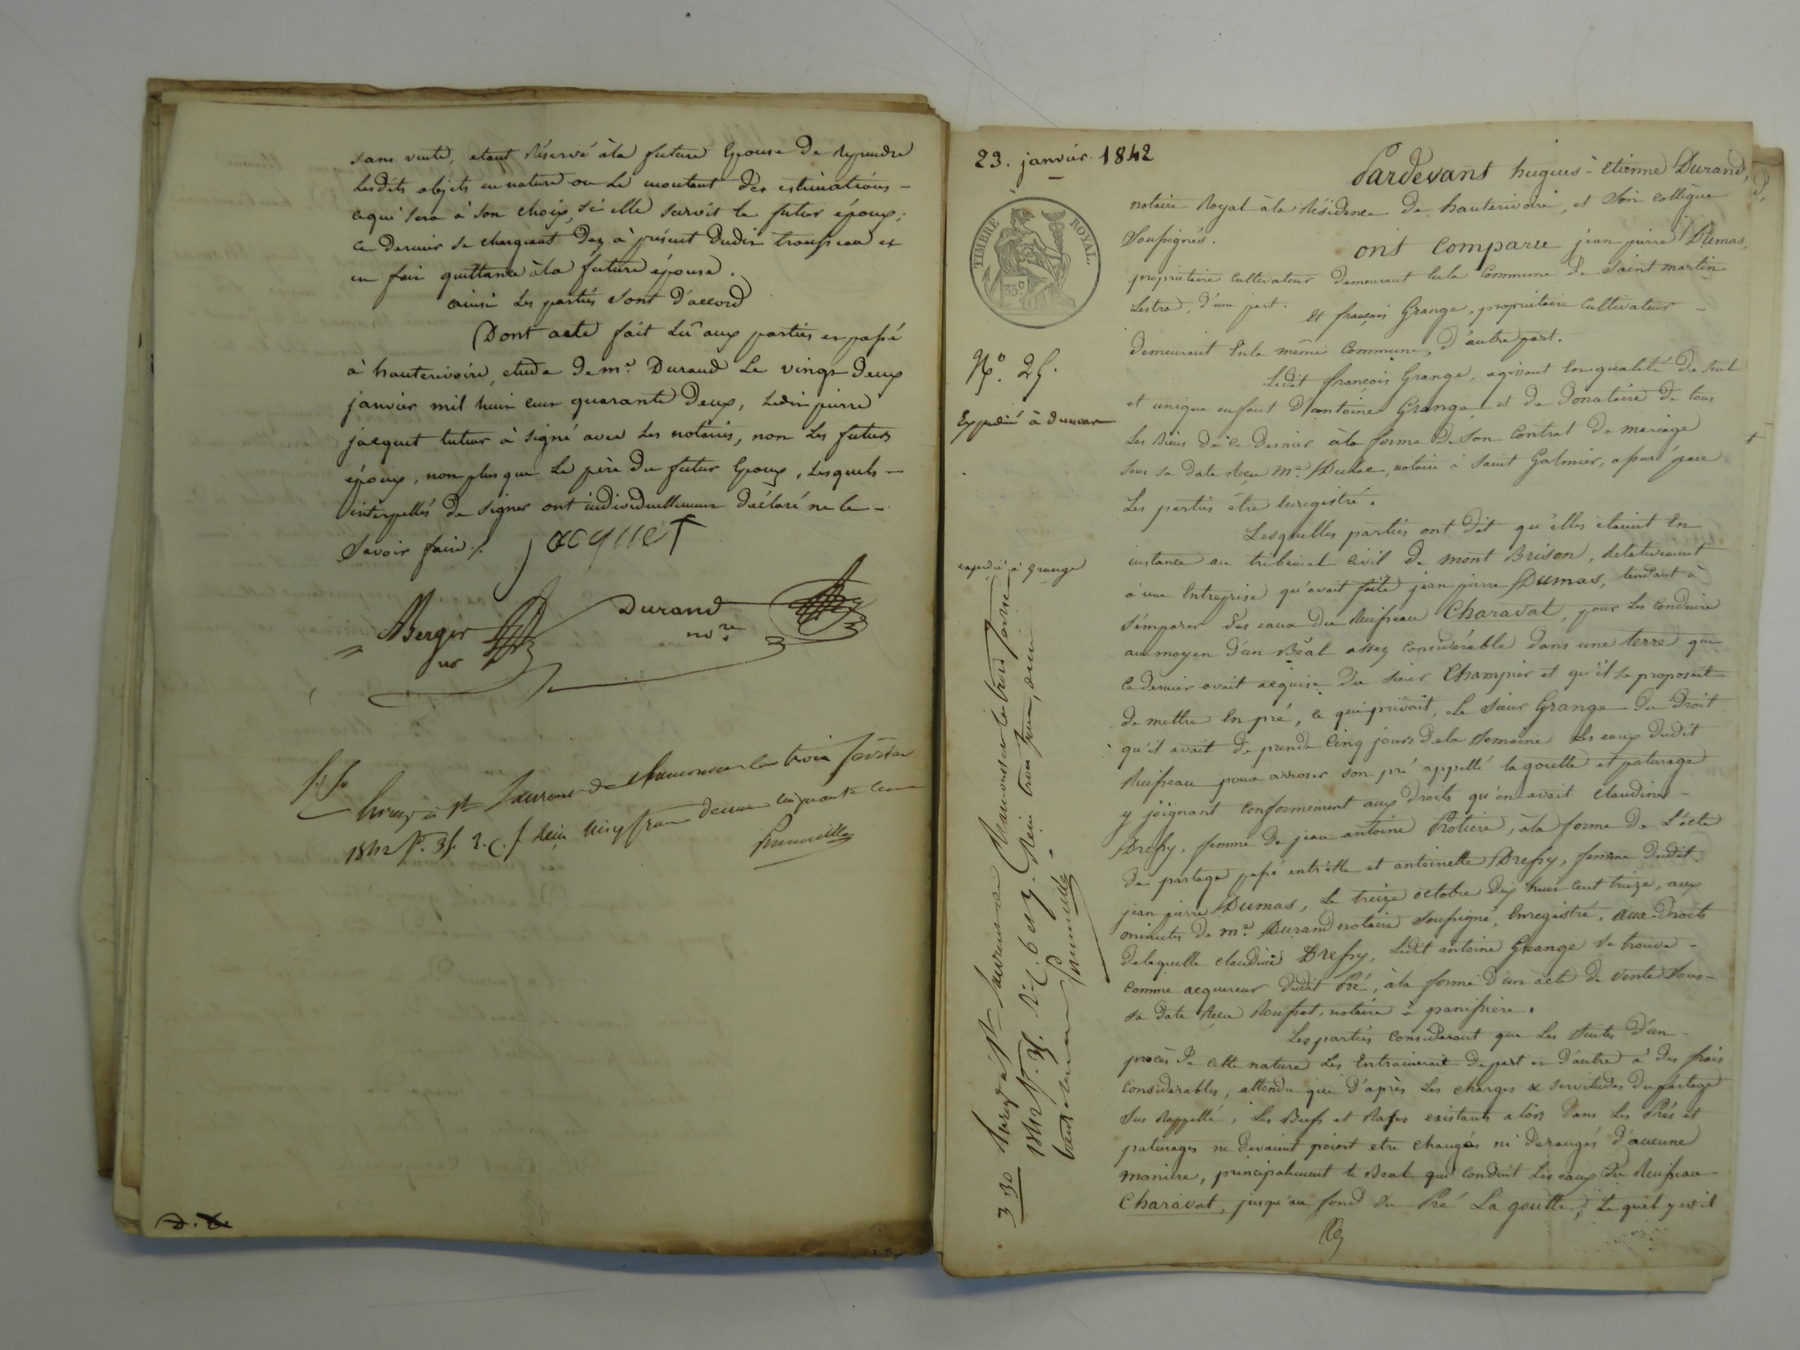 sans vente, etant réservé à la future Epouse de reprendre
lesdits objets en nature ou le montant des estimations -
ce qui sera à son choix, si elle survit le futur époux;
ce dernier se chargeant dez à présent dudit trousseau et
en fait quittance à la future épouse.
ainsi les parties sont d'accord
Dont acte fait Lu aux parties et passé
à hauterivoire, etude de me. Durand Le vingt deux
janvier mil huit cent quarante Deux, Ledit pierre
jacquet tuteur à signé avec Les notaires, non Les futurs
époux, non plus que Le père du futur Epoux, Lesquels -
interpellés de signer ont individuellement déclaré ne le -
Savoir faire ./.
jacquet
Durand
nore
Berger
nre
Enregé à St Laurent de Chamousset le trois février
1842 fo. 35. r. c. f. Reçu cinq francs decime cinquante cent
D. De
23. janvier. 1842
TIMBRE ROYAL.
35c
No. 25.
Expedié à Dumas
expedié à Grange
Enregé à St Laurent de Chamousset le trois février
1842 fo. 35. Vo. C. 6 et 7. Reçu trois francs, decime
trente centimes
3 30
Pardevant hugues-Etienne Durand,
notaire Royal à la Résidence de hauterivoire, et Son collègue
Soussignés.
ont comparu jean pierre Dumas,
propriétaire Cultivateur demeurant En la Commune de Saint martin
Lestra, d'une part. Et françois Grange, propriétaire Cultivateur -
demeurant En la même Commune, d'autre part.
Ledit françois Grange, agissant En qualité de Seul
et unique enfant D'antoine Grange et de Donataire de tous
Les Biens de ce Dernier à la forme de Son Contrat de mariage
Sous sa date Reçu me. Dulac, notaire à Saint Galmier, assuré par
Les parties être Enregistré.
Lesquelles parties ont dit qu'elles étaient En
instance au tribunal Civil de mont Brison, Relativement
à une Entreprise qu'avait faite jean pierre Dumas, tendant à
s'emparer des eaux du Ruisseau Charavat, pour Les Conduire
au moyen d'un Béal assez Considérable dans une terre que
ce dernier avait acquise du sieur Champier et qu'il se proposait
de mettre En pré, ce qui privait, le Sieur Grange du Droit
qu'il avait de prendre Cinq jours de la Semaine Les eaux dudit
Ruisseau pour arroser son pré appellé la goutte et paturage
y joignant conformement aux Droits qu'en avait claudine -
Drefsy, femme de jean antoine Protière, à la forme de L'acte
de partage passé entr'elle et antoinette Drefsy, femme dudit
jean pierre Dumas, Le treize octobre Dix huit cent treize, aux
minutes de me. Durand notaire Soussigné, Enregistré. aux Droits
de laquelle claudine Drefsy, Ledit antoine Grange se trouve -
comme acquereur dudit Pré, à la forme d'un acte de vente Sous -
sa Date Reçu Rufset, notaire à panissière.
Les parties Considérant que Les Suites D'un -
procès De cette nature Les Entrainerait de part et D'autre à des frais
Considérables, attendu que D'après Les charges & servitudes du partage
Sus Rappellé, Les Biefs et Rases existants alors Dans Les Prés et
paturages ne Devaient point etre changés ni derangés D'aucune
maniere, principalement le Béal qui conduit Les eaux du Ruisseau
Charavat, jusqu'au fond du Pré La goutte, Le quel y est il